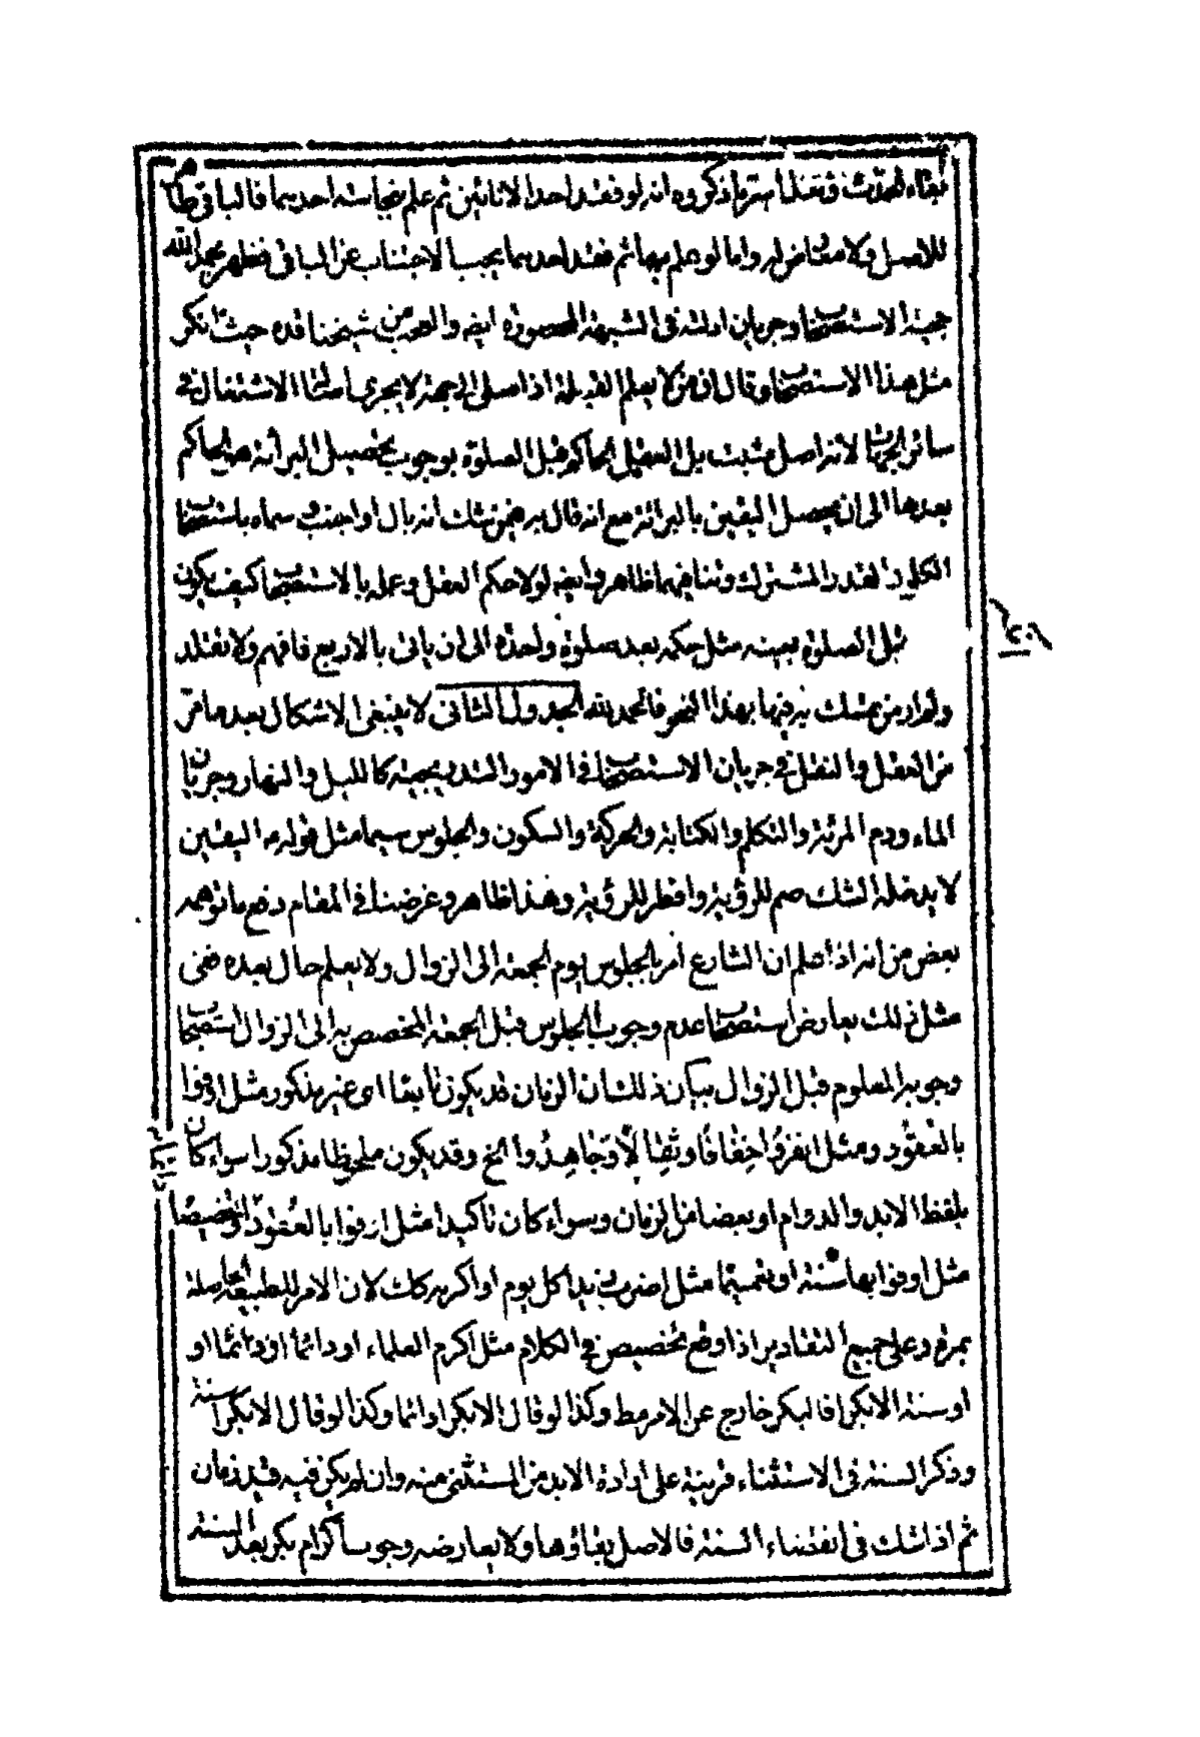 بقاء الحدث ونقل استر ما ذكروه انه لو فقد احد الانائين ثم علم نجاسته احديهما فالباقى طاهر
للاصل ولا معارض له واما لو علم بهما ثم فقد احديهما يجب الاجتناب عن الباقى فظهر بحمد الله
حجية الاستصحاب وجريان ادلته فى الشبهة المحصورة ايضه والعجب من شيخنا قده حيث انكر
مثل هذا الاستصحاب وقال ان من لا يعلم القبلة اذا صلى الى جهة لا يجرى اصالة الاشتغال فى
سائر الجهات لانه اصل مثبت بل العقل الحاكم قبل الصلوة بوجوب تحصيل البرائة هو الحاكم
بعدها الى ان يحصل اليقين بالبرائة مع انه قال به فيمن شك انه بال او اجنب وسماه باستصحاب
الكلى والقدر المشترك وتنافيهما ظاهر وايضه لولا حكم العقل وعمله بالاستصحاب كيف يكون
قبل الصلوة بعينه مثل حكمه بعد صلوة واحدة الى ان ياتى بالاربع فافهم ولا تقلد
ولم ار من تمسك به فيها بهذا النحو فالحمد لله الجدول الثانى لا ينبغى الاشكال بعد ما مر
من العقل والنقل فى جريان الاستصحاب فى الامور التدريجية كالليل والنهار وجريان
الماء ودم المرئة والتكلم والكتابة والحركة والسكون والجلوس سيما مثل قوله ع اليقين
لا يدخله الشك صم للرؤية وافطر للرؤية وهذا ظاهر وغرضنا فى المقام دفع ما توهمه
بعض من انه اذا علم ان الشارع امر بالجلوس يوم الجمعة الى الزوال ولا يعلم حال بعده ففى
مثل ذلك يعارض استصحاب عدم وجوب الجلوس قبل الجمعة المخصص به الى الزوال استصحاب
وجوبه المعلوم قبل الزوال بيان ذلك ان الزمان قد يكون تابعا اى غير مذكور مثل اوفوا
بالعقود ومثل انفروا خفافا وثقالا وجاهدوا الخ وقد يكون ملحوظا مذكورا سواء كان
بلفظ الابد والدوام او بعضا من الزمان وسواء كان تاكيدا مثل اوفوا بالعقود او تخصيصا
مثل اوفوا بها سنة او تعميما مثل اضرب زيدا كل يوم او اكرمه كك لان الامر للطبيعة الحاصلة
بمرة وعلى جميع التقادير اذا وقع تخصيص فى الكلام مثل اكرم العلماء او دائما او
او سنة الا بكرا فالبكر خارج عن الامر مط وكذا لو قال الا بكرا دائما وكذا لو قال الا بكرا سنة
وذكر السنة فى الاستثناء قرينة على ارادة الابد من المستثنى منه وان لم يكن فيه قيد زمان
ثم اذا شك فى انقضاء السنة فالاصل بقاؤها ولا يعارضه وجوب اكرام بكر بعد السنة